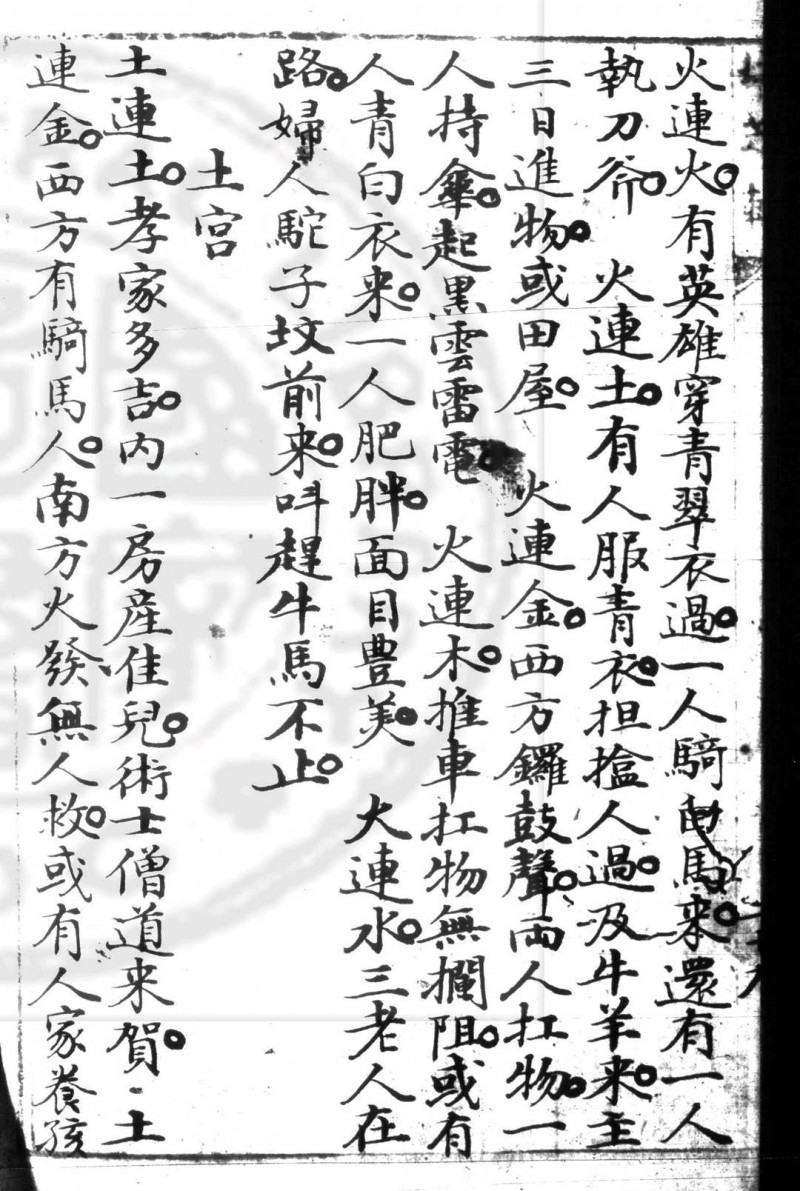 火連火。有英雄穿青翠衣過。一人騎白馬来。還有一人
執刀斧。 火連土。有人服青衣。担搶人過。及牛羊来。主
三日進物。或田屋。 火連金。西方鑼鼓聲。両人扛物。一
人持傘。起黒雲雷電。 火連木。推車扛物無攔阻。或有
人青白衣来。一人肥胖。面目豊美。 火連水。三老人在
路。婦人駝子坟前来。呌趕牛馬不止。
土宫
土連土。孝家多吉。内一房産佳兒。術士僧道来賀。土
連金。西方有騎馬人。南方火發無人救。或有人家養孩